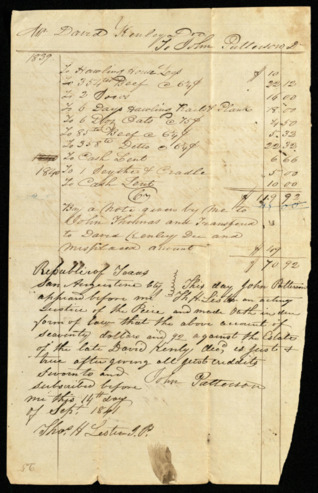 Mr David Henley Dr
To John Patterson Dr
1839
To Hawling Logs $ 10
To 354 lb Beef @ 6¼¢ 22 12
To 2 16 00
To 6 Days Hawling & Plank 18
To 6 Oats @ 75¢ 4 50
To 85 lb Beef @ 6¼¢ 5 32
To 358 lb Ditto @ 6¼¢ 22 32
To Cash Lent 6 66
1840 To 1 & Cradle 5 00
To Cash Lent 10 00
By a Note given by me to
John Thomas and Transfered
to David Henley Dec and
amount $ 49
$ 70 92
Republic of Texas
San Augustine Cty This day John Patterson
appeard before me Th. H. Leslie an acting
Justice of the Peace and made Oath in due
form of Law that the above account of
seventy dollars and 92 against the Estate
of the late David Henly Decd is Just &
true after giving all Just credits
Sworn to and
subscribed before John Patterson
me this 14th day
of Sept 1841
Thos H Leslie J.P.